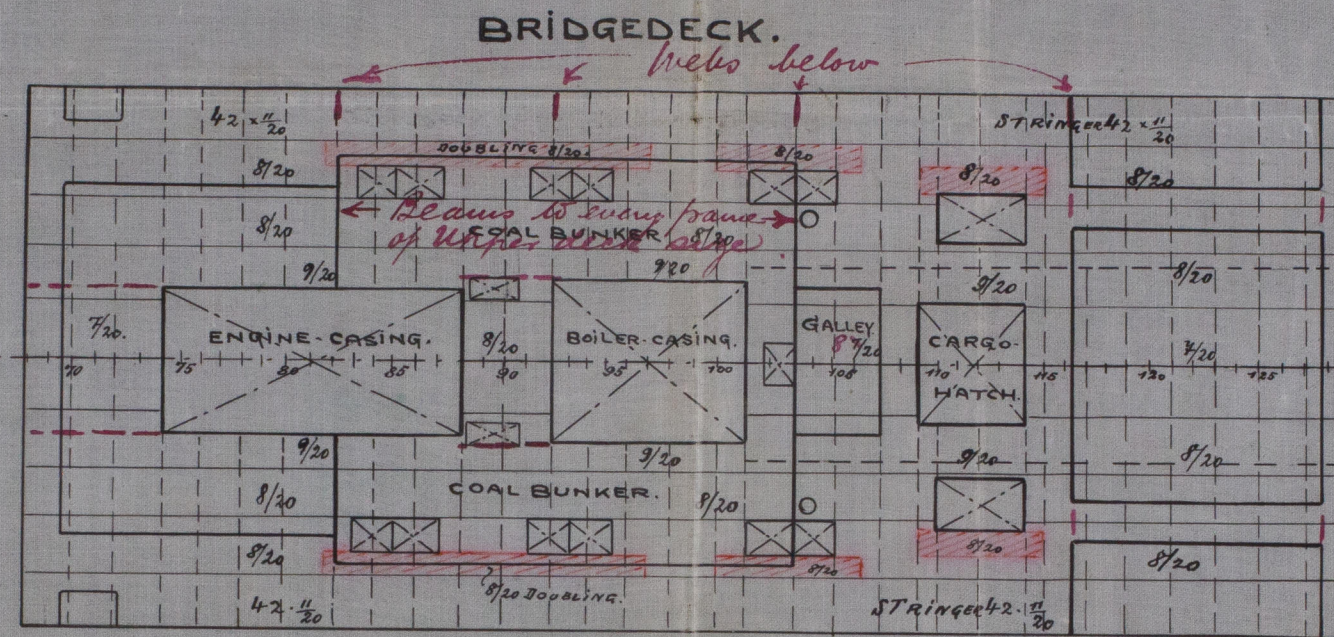 BRIDGEDECK.
Webs below
42 × 11/20
STRINGER 42 × 11/20
DOUBLING 8/20.
8/20
8/20
8/20
8/20
8/20
← Beams to every frame →
COAL BUNKER 8/20
of Upper deck
9/20
9/20
9/20
8/20
7/20.
ENGINE-CASING.
8/20
BOILER-CASING.
GALLEY
8 7/20
CARGO-
HATCH.
7/20
70 75 80 85 90 95 100 105 110 115 120 125
9/20
9/20
9/20
8/20
8/20
COAL BUNKER.
8/20
8/20
8/20
8/20
8/20
8/20 DOUBLING.
42 · 11/20
STRINGER 42 · 11/20